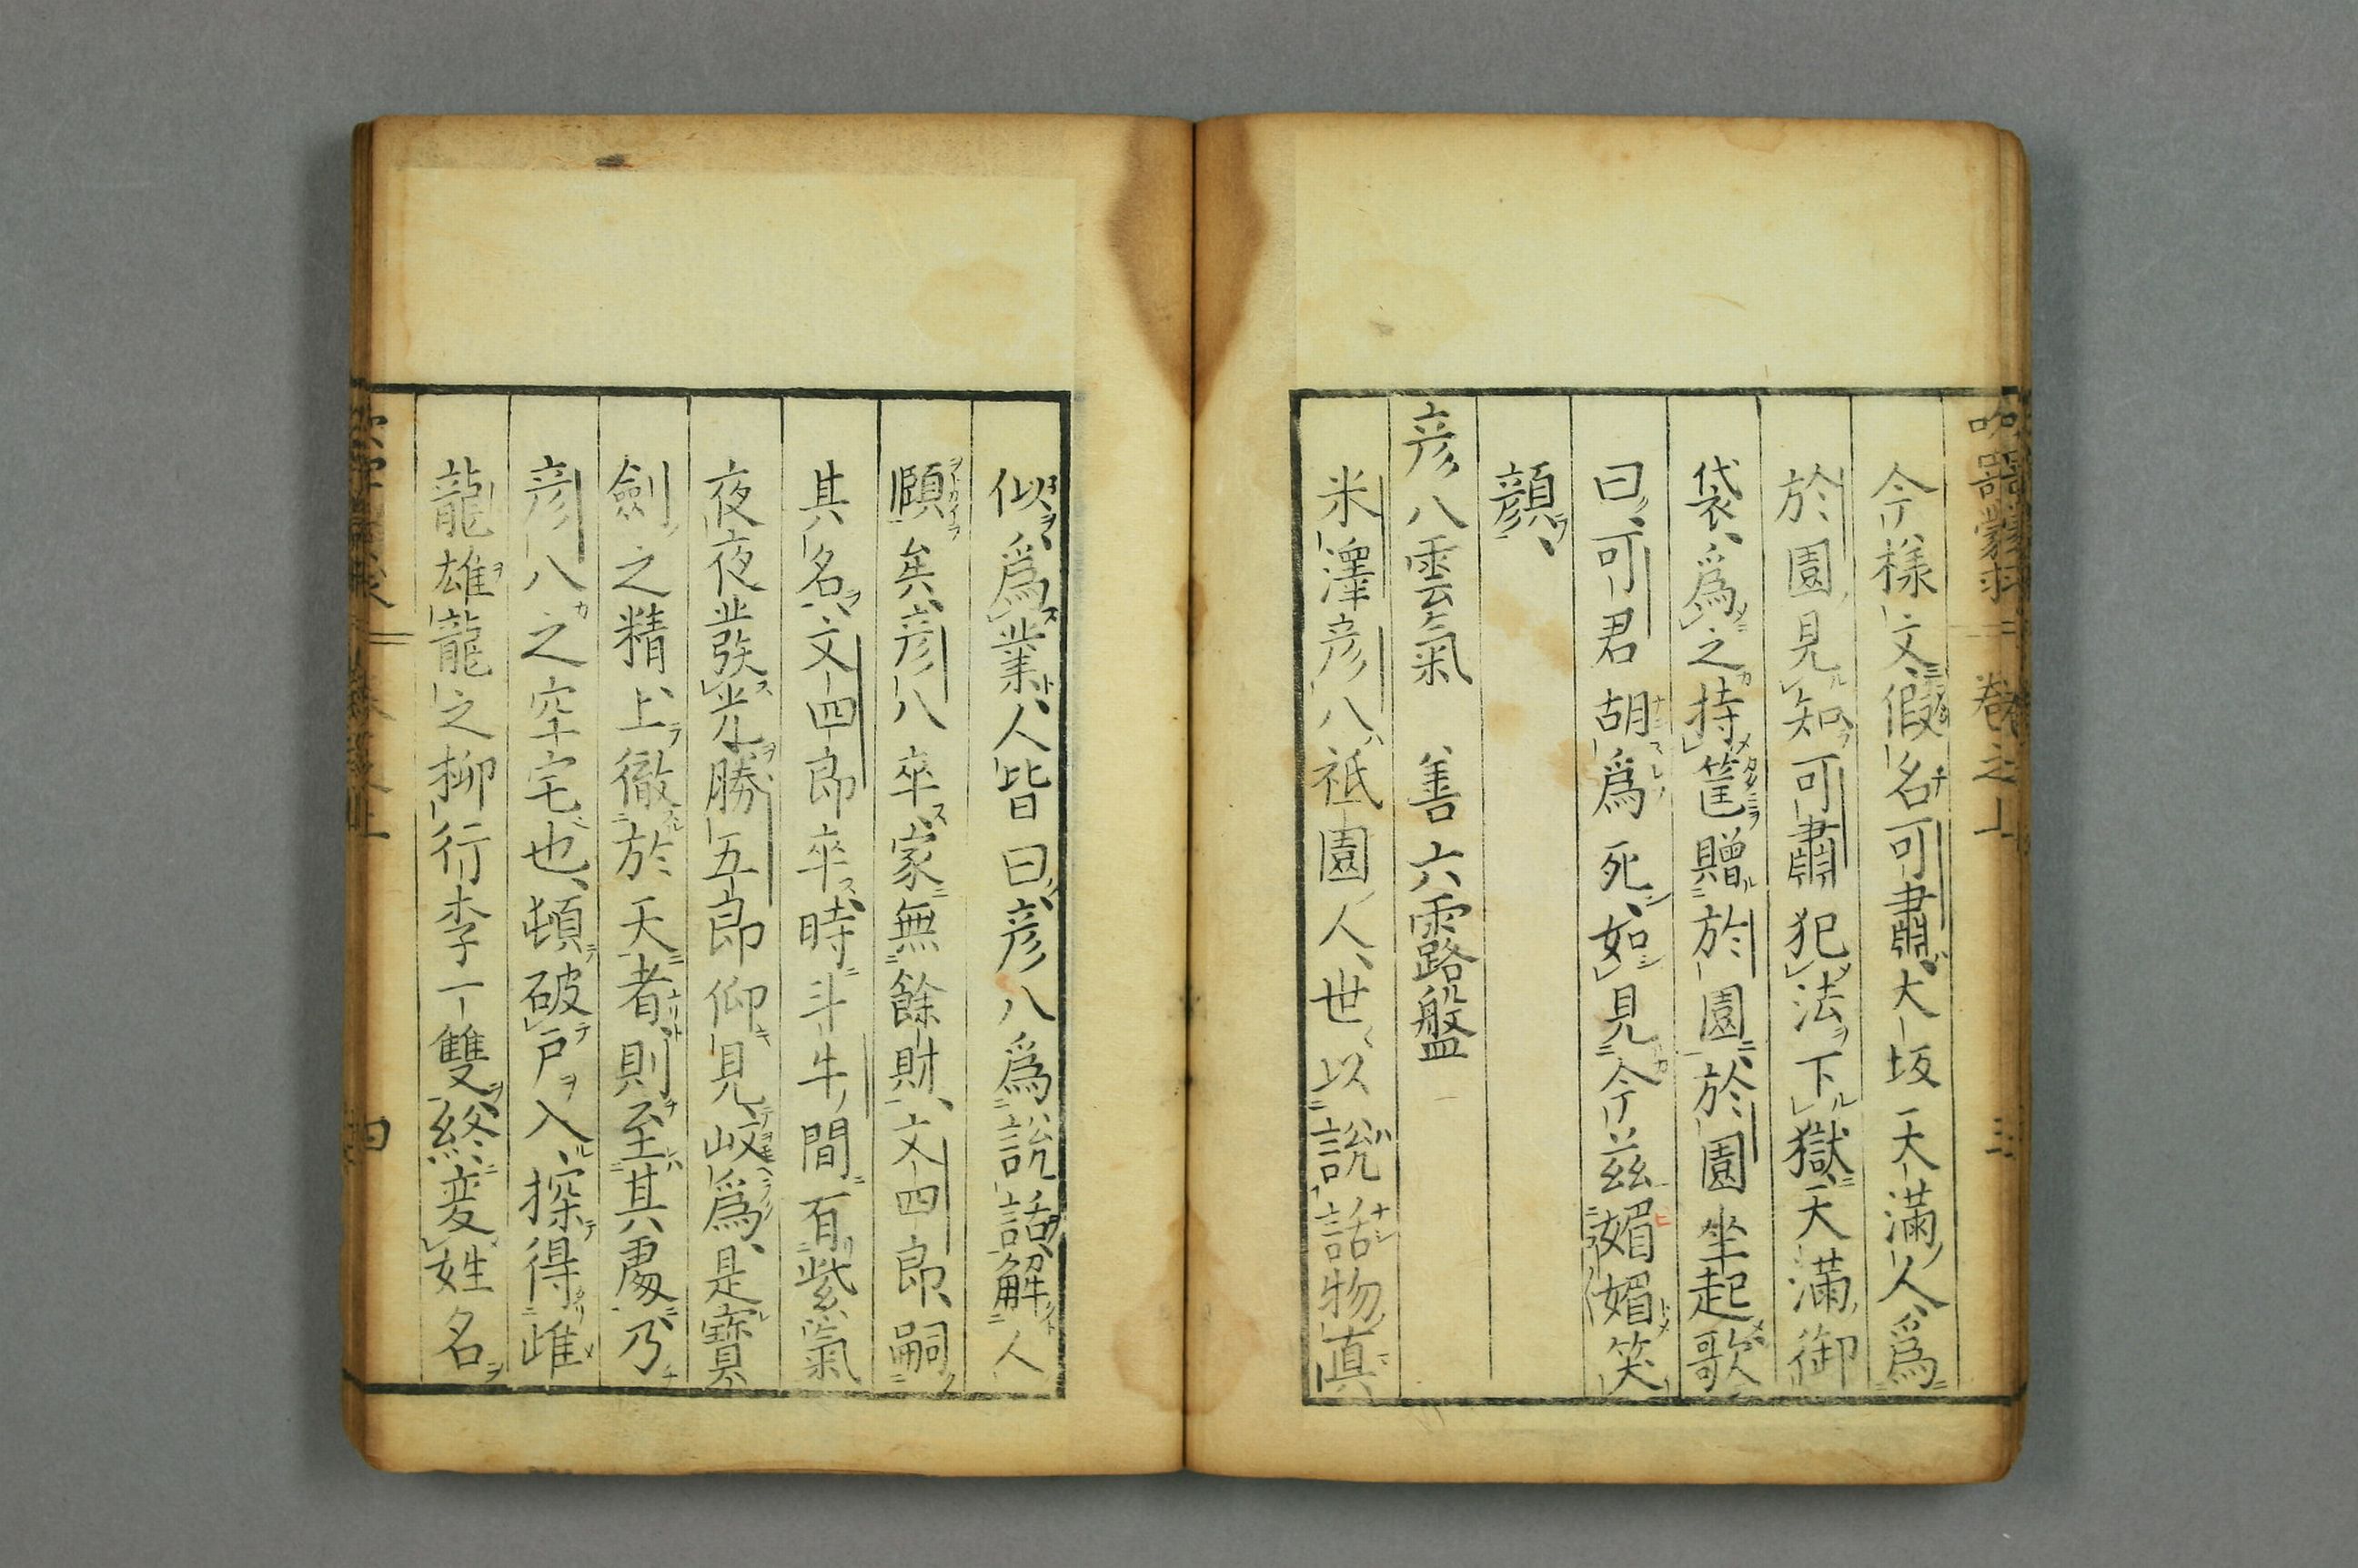 今様文假名可肅大坂天滿人爲
於園見知可肅犯法下獄天滿御
袋爲之持筐贈於園於園坐起歌
曰可君胡爲死如見今茲媚媚笑
顔
彦八雲氣　善六露盤
米澤彦八祇園人世以說話物真
似爲業人皆曰彦八爲說話解人
頤矣彦八卒家無餘財文四郎嗣
其名文四郎卒時斗牛間有紫氣
夜夜並發光勝五郎仰見歧爲是寶
劍之精上徹於天者則至其處乃
彦八之空宅也頓破戸入探得雌
龍雄龍之柳行李一雙終変姓名